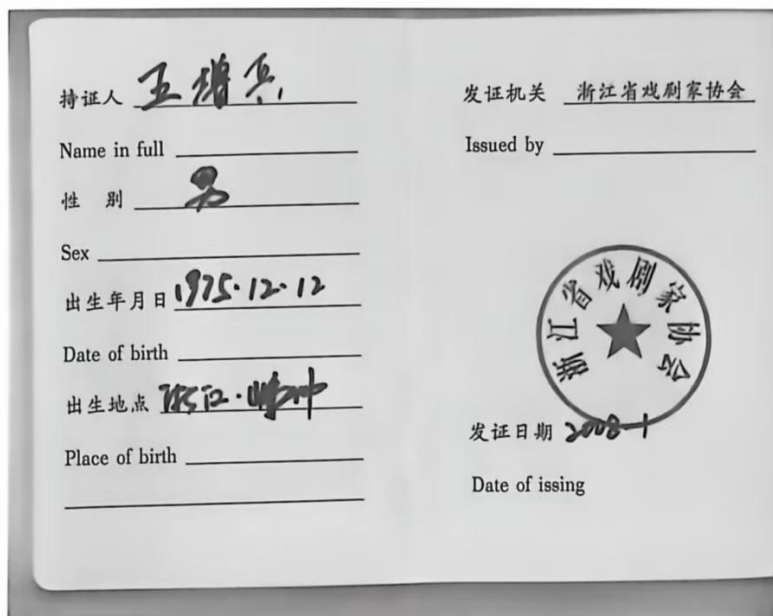 持证人 王增兵
Name in full
性 别 男
Sex
出生年月日 1975.12.12
Date of birth
出生地点 浙江·嵊州
Place of birth
发证机关 浙江省戏剧家协会
Issued by
浙江省戏剧家协会
发证日期 2008-1
Date of issing